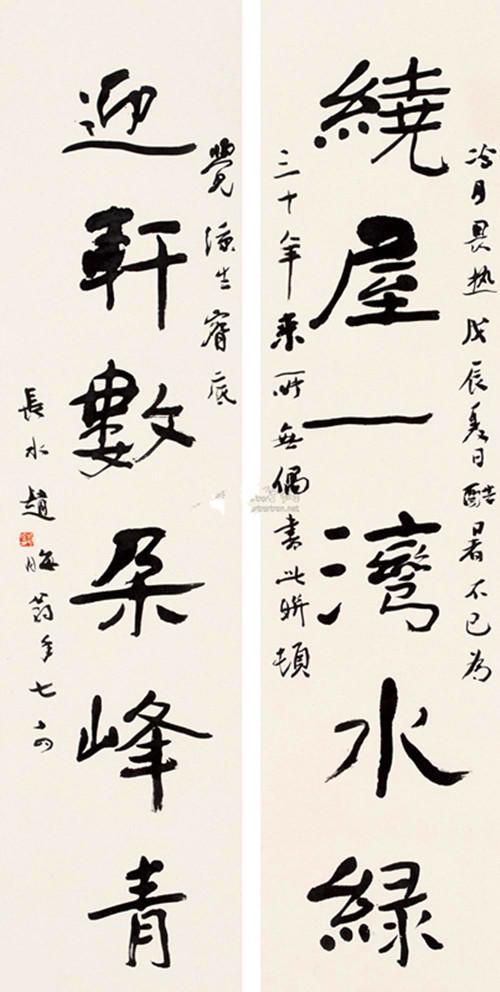 繞屋一灣水緑
冷月畏热戊辰夏日酷暑不已为
三十年来所無偶書此聯頓
迎軒數朵峰青
覺涼生窗底
長水趙
年七十
artron.net